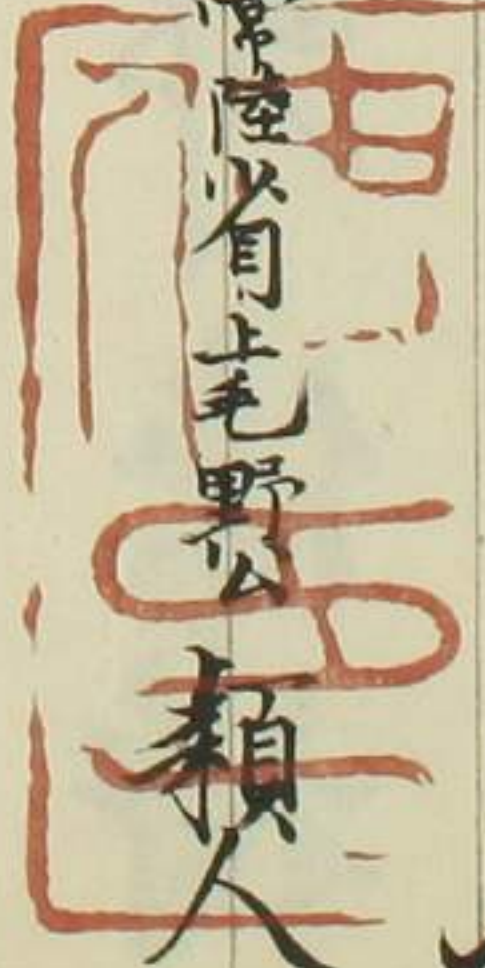 常陸少目上毛野公頴人